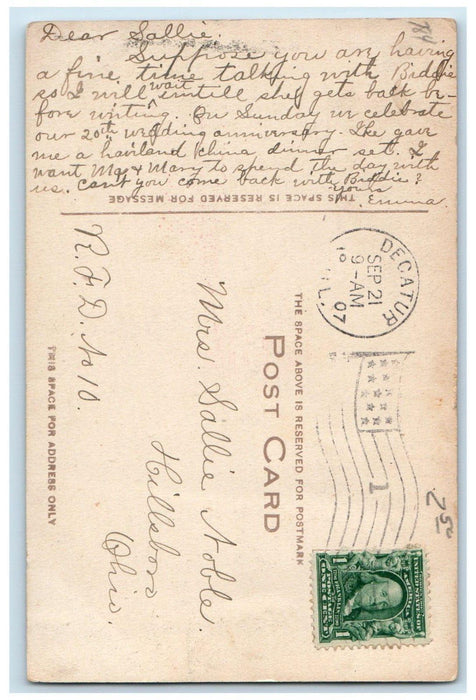 Dear Sallie.
Suppose you are having
a fine time talking with Biddie
so I will wait untill she gets back be-
fore writing. On Sunday we celebrate
our 20th wedding anniversary. Ike gave
me a haviland china dinner set. I
want Ma & Mary to spend the day with
us. Can't you come back with Biddie?
Yours
Emma.
THIS SPACE IS RESERVED FOR MESSAGE
784
THE SPACE ABOVE IS RESERVED FOR POSTMARK
POST CARD
THIS SPACE FOR ADDRESS ONLY
Mrs. Sallie Noble.
Hillsboro
Ohio.
R.F.D. No 10.
DECATUR
SEP 21
9-AM
07
ILL.
1
7 50
UNITED STATES OF AMERICA
FRANKLIN
POSTAGE
ONE CENT
1 1